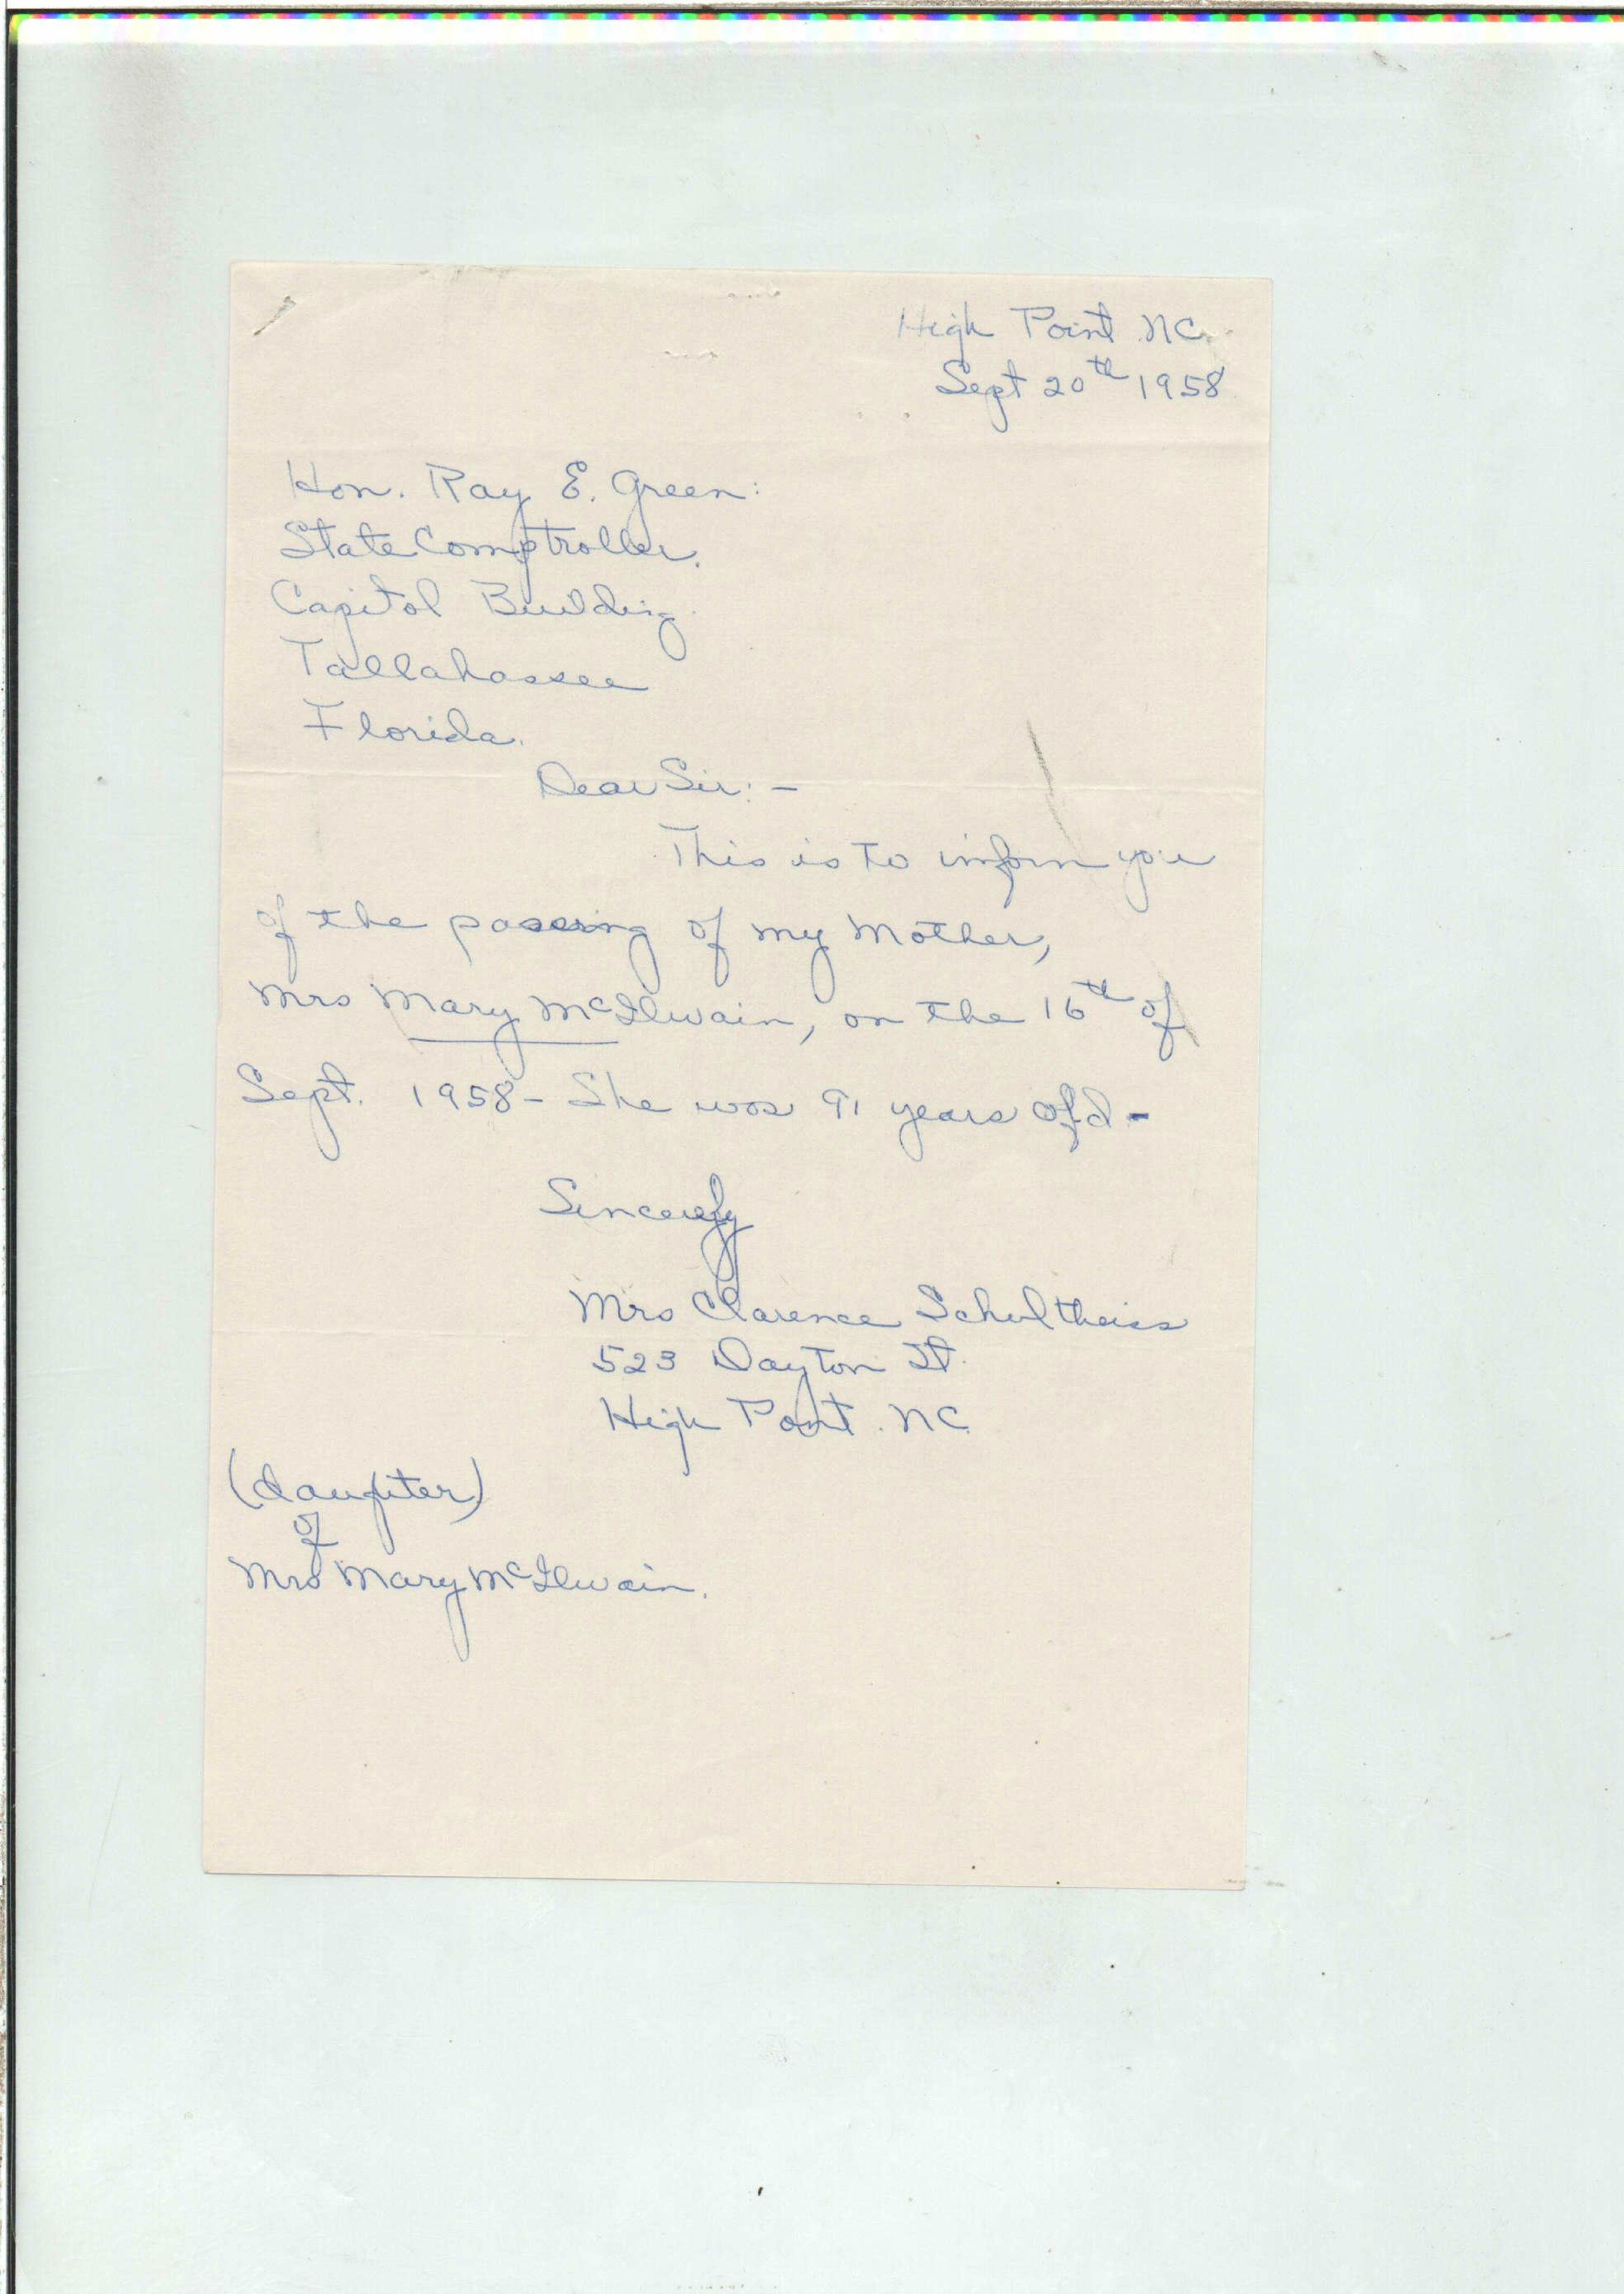 High Point NC.
Sept 20th 1958
Hon. Ray E. Green:
State Comptroller.
Capitol Building.
Tallahassee
Florida.
Dear Sir: -
This is to inform you
of the passing of my Mother,
Mrs Mary McIlwain, on the 16th of
Sept. 1958 - She was 91 years old -
Sincerely
Mrs Clarence Schultheiss
523 Dayton St.
High Point. NC.
(daughter)
of
Mrs Mary McIlwain.